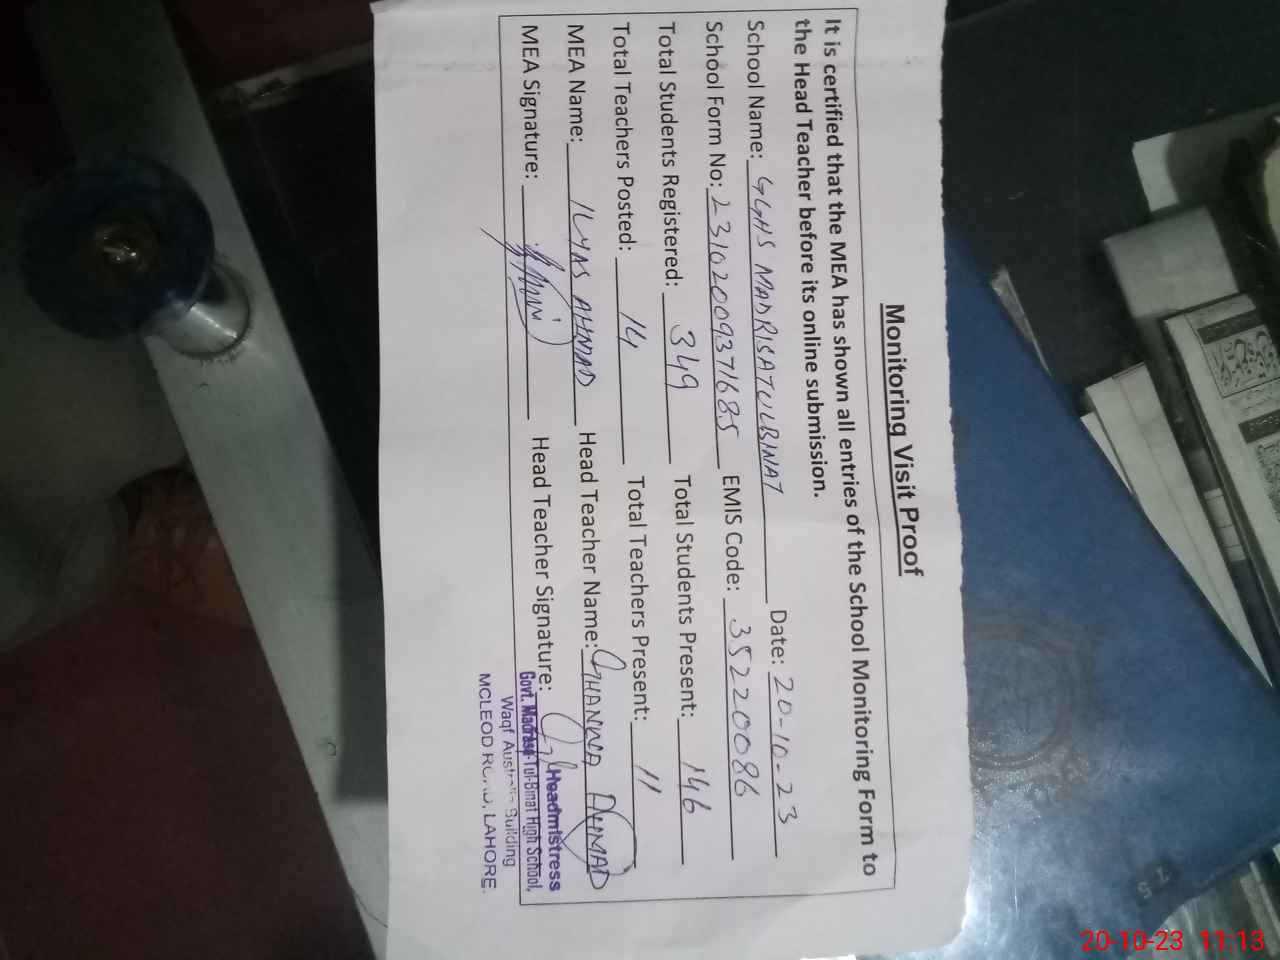 Monitoring Visit Proof
It is certified that the MEA has shown all entries of the School Monitoring Form to
the Head Teacher before its online submission.
School Name: GGHS MADRISATULBINAT Date: 20-10-23
School Form No: 23102009371685 EMIS Code: 35220086
Total Students Registered: 349 Total Students Present: 146
Total Teachers Posted: 14 Total Teachers Present: 11
MEA Name: ILYAS AHMAD Head Teacher Name: AHMAD
MEA Signature: Head Teacher Signature:
Headmistress
Govt. Madrasa-Tul-Binat High School,
Waqf Building
MCLEOD LAHORE.
20-10-23 11:13